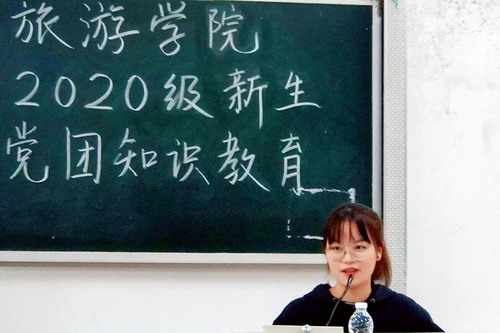 旅游学院
2020级新生
党团知识教育